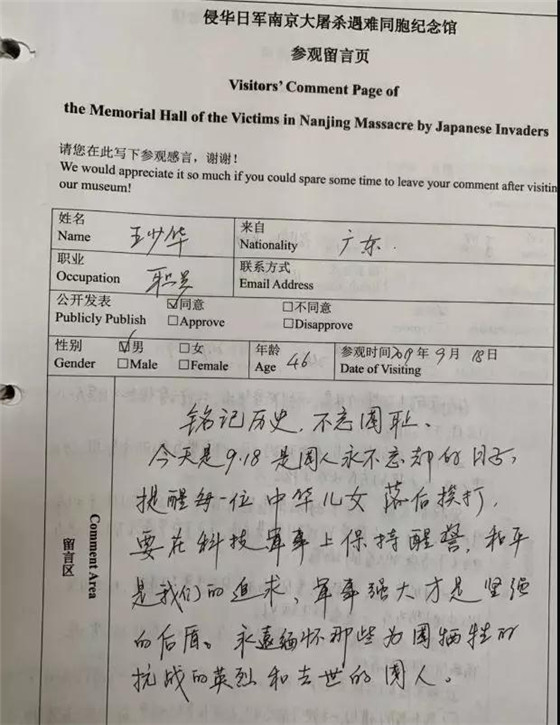 侵华日军南京大屠杀遇难同胞纪念馆
参观留言页
Visitors' Comment Page of
the Memorial Hall of the Victims in Nanjing Massacre by Japanese Invaders
请您在此写下参观感言，谢谢！
We would appreciate it so much if you could spare some time to leave your comment after visiting
our museum!
姓名 来自
Name 王少华 Nationality 广东.
职业 联系方式
Occupation 职员 Email Address
公开发表 ☑同意 □不同意
Publicly Publish □Approve □Disapprove
性别 ☑男 □女 年龄 参观时间2019年9月18日
Gender □Male □Female Age 46 Date of Visiting
留言区
Comment Area
铭记历史，不忘国耻、
今天是9.18是国人永不忘却的日子，
提醒每一位中华儿女落后挨打，
要在科技军事上保持醒警，和平
是我们的追求，军事强大才是坚强
的后盾。永远缅怀那些为国牺牲的
抗战的英烈和去世的国人。